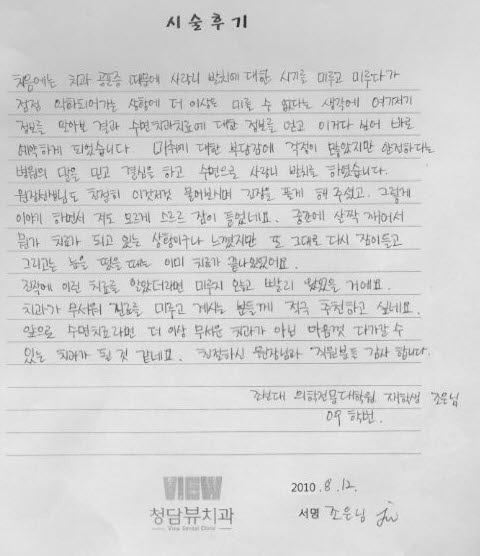 시술후기
처음에는 치과 공포증 때문에 사랑니 발치에 대한 시기를 미루고 미루다가
점점 악화되어가는 상황에 더 이상은 미룰 수 없다는 생각에 여기저기
정보를 알아본 결과 수면치과치료에 대한 정보를 얻고 이거다 싶어 바로
예약하게 되었습니다. 마취에 대한 부담감에 걱정이 많았지만 안전하다는
병원의 말을 믿고 결심을 하고 수면으로 사랑니 발치를 하였습니다.
원장선생님도 친절히 이것저것 물어보시며 긴장을 풀게 해 주셨고. 그렇게
이야기 하면서 저도 모르게 스르르 잠이 들었네요. 중간에 살짝 깨어서
뭔가 치료가 되고 있는 상황이구나 느꼈지만 또 그대로 다시 잠이들고
그리고는 눈을 떴을 때는 이미 치료가 끝나있었어요.
진작에 이런 치료를 알았더라면 미루지 않고 빨리 왔었을 거에요.
치과가 무서워 진료를 미루고 계시는 분들께 적극 추천하고 싶네요.
앞으로 수면치료라면 더 이상 무서운 치과가 아닌 마음껏 다가갈 수
있는 치과가 될 것 같네요. 친절하신 원장님과 직원분들 감사 합니다.
조선대 의학전문대학원 재학생 조은님
09 학번.
VIEW
청담뷰치과
View Dental Clinic
2010.8.12.
서명 조은님